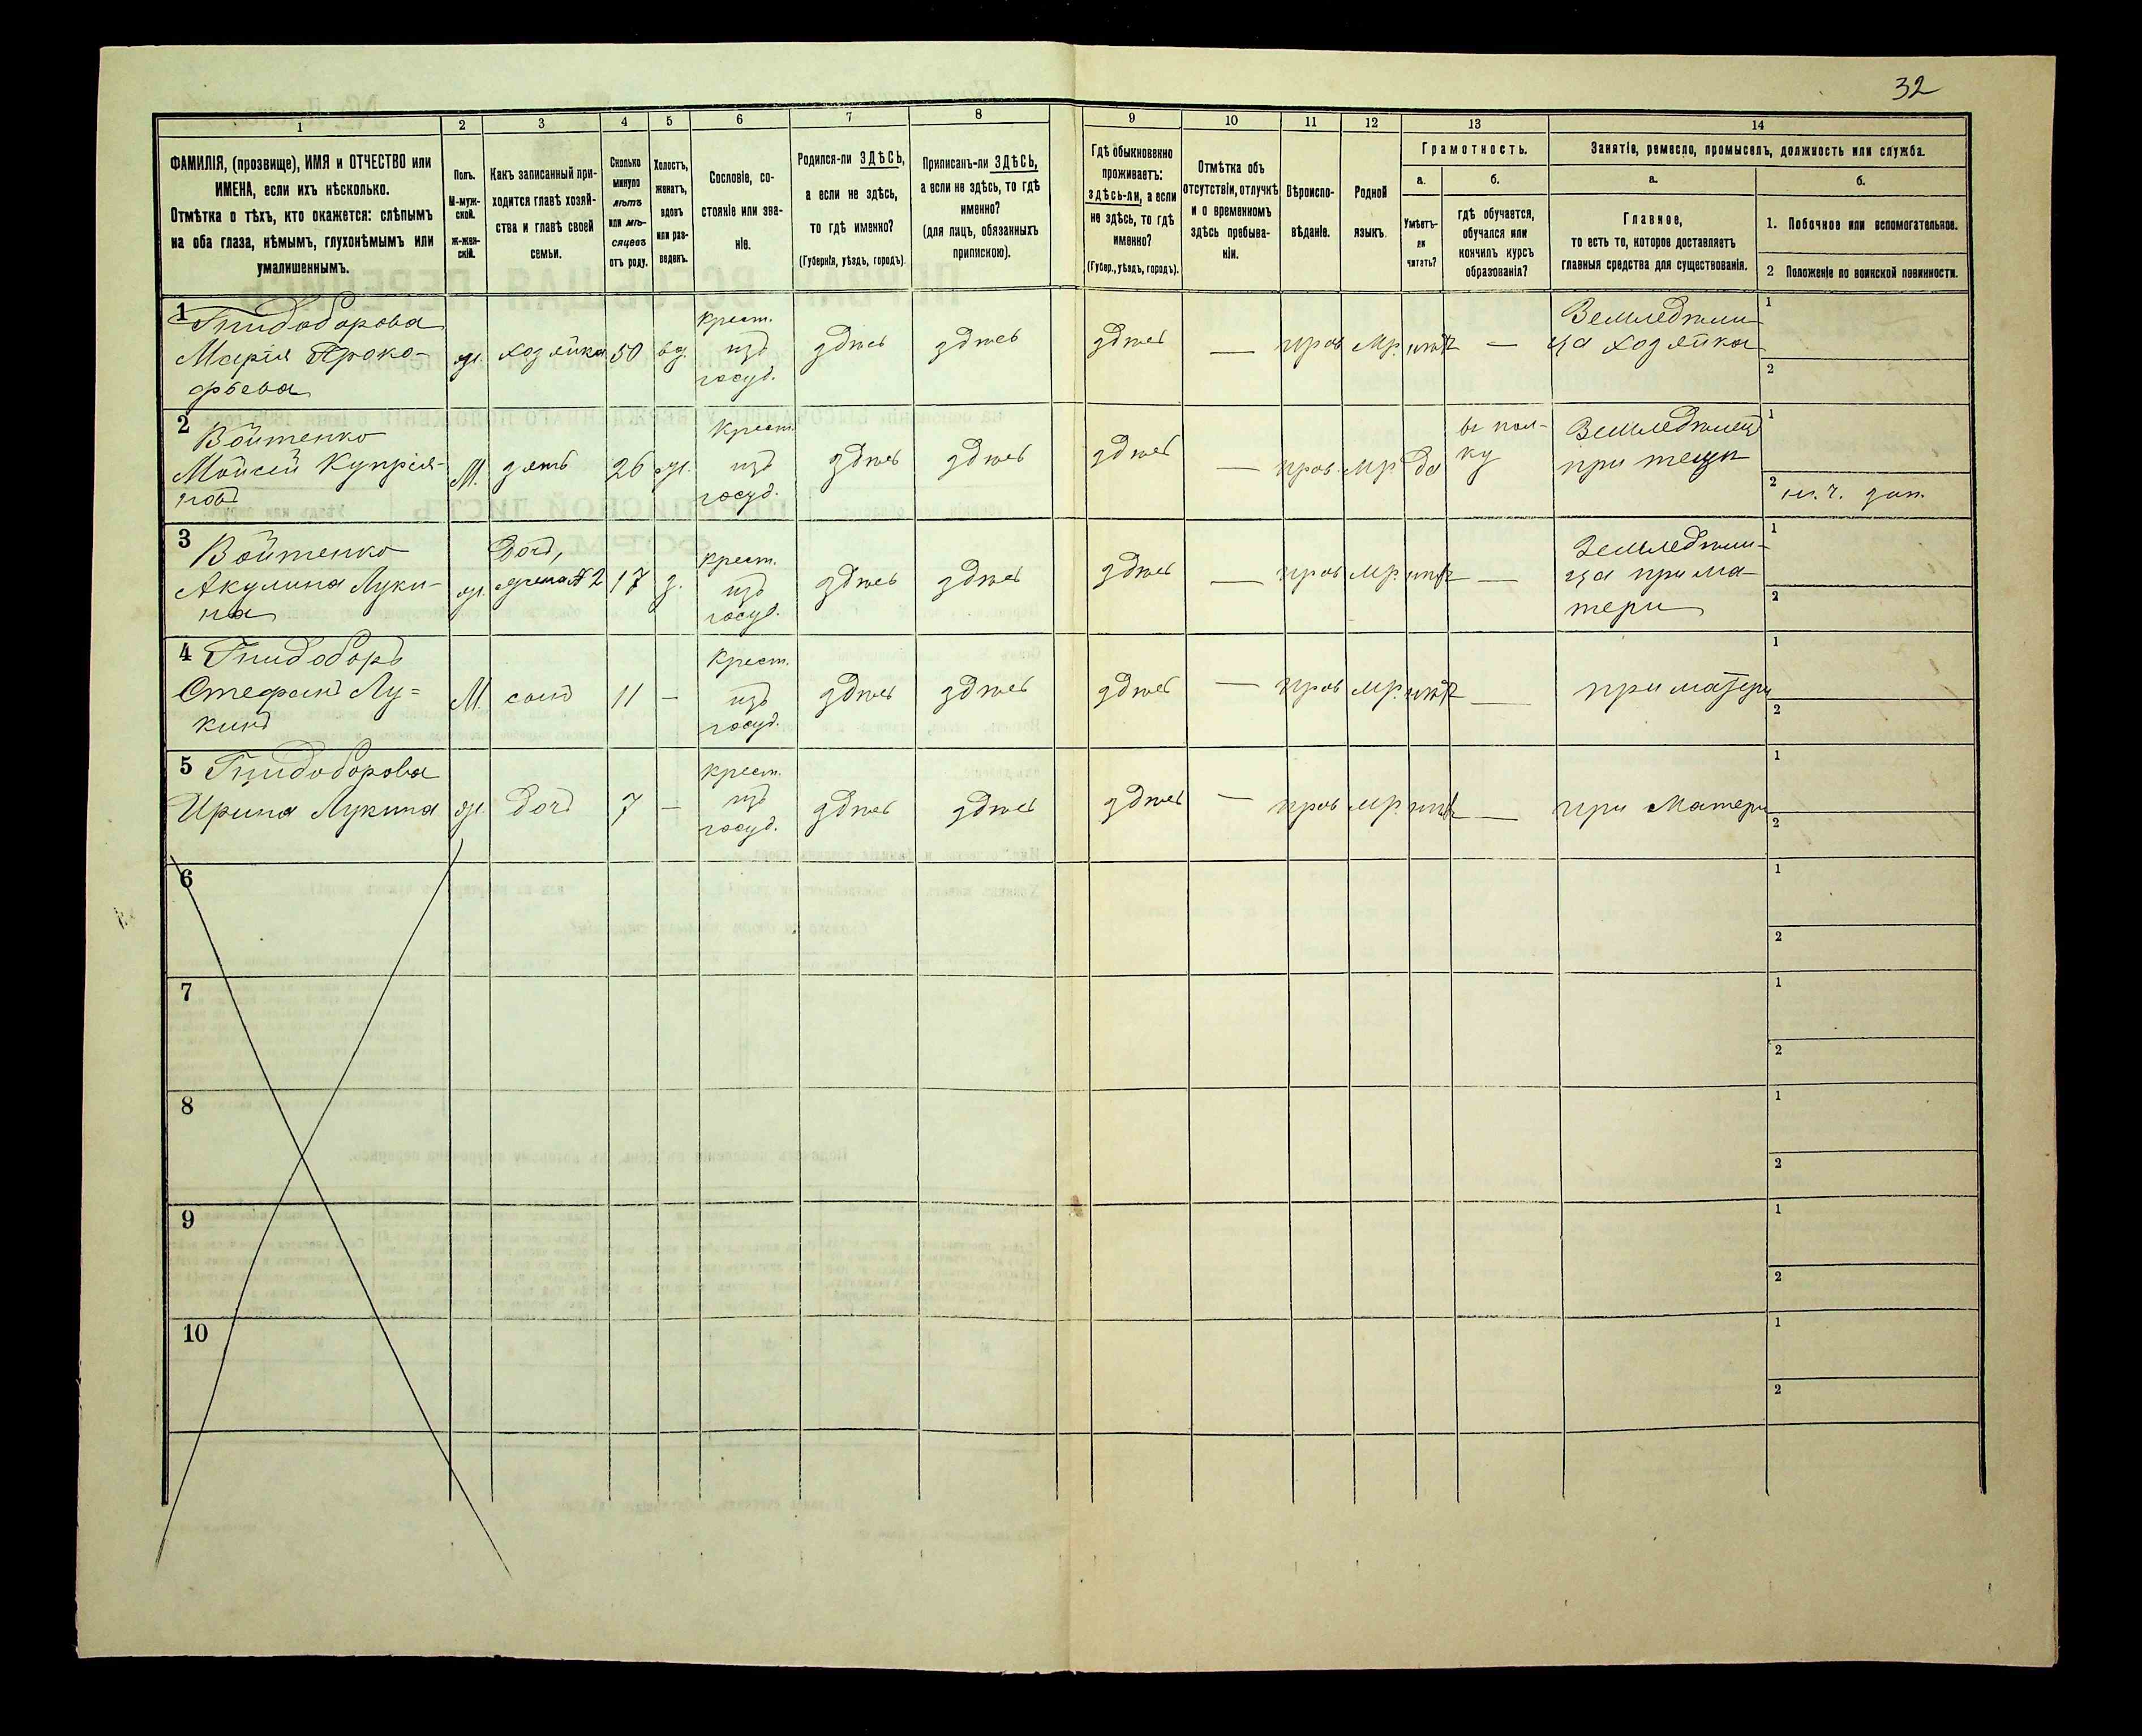 32
1
2
3
4
5
6
7
8
9
10
11
12
13
14
ФАМИЛІЯ, (прозвище), ИМЯ и ОТЧЕСТВО или
ИМЕНА, если ихъ нѣсколько.
Отмѣтка о тѣхъ, кто окажется: слѣпымъ
на оба глаза, нѣмымъ, глухонѣмымъ или
умалишеннымъ.
Полъ.
М-муж-
ской.
ж-жен-
скій.
Какъ записанный при-
ходится главѣ хозяй-
ства и главѣ своей
семьи.
Сколько
минуло
лѣтъ
или мѣ-
сяцевъ
отъ роду.
Холостъ,
женатъ,
вдовъ
или раз-
веденъ.
Сословіе, со-
стояніе или зва-
ніе.
Родился-ли ЗДѢСЬ,
а если не здѣсь,
то гдѣ именно?
(Губернія, уѣздъ, городъ).
Приписанъ-ли ЗДѢСЬ,
а если не здѣсь, то гдѣ
именно?
(для лицъ, обязанныхъ
припискою).
Гдѣ обыкновенно
проживаетъ:
здѣсь-ли, а если
не здѣсь, то гдѣ
именно?
(Губер., уѣздъ, городъ).
Отмѣтка объ
отсутствіи, отлучкѣ
и о временномъ
здѣсь пребыва-
ніи.
Вѣроиспо-
вѣданіе.
Родной
языкъ.
Грамотность.
а.
Умѣетъ-
ли
читать?
б.
гдѣ обучается,
обучался или
кончилъ курсъ
образованія?
Занятіе, ремесло, промыселъ, должность или служба.
а.
Главное,
то есть то, которое доставляетъ
главныя средства для существованія.
б.
1. Побочное или вспомогательное.
2 Положеніе по воинской повинности.
1
Марія Проко-
фьева
ж. хозяйка 50 вд.
Крест.
изъ
госуд.
здѣсь здѣсь здѣсь — прав Мр. нѣтъ —
Земледѣли-
ца хозяйка
1
2
2
Войтенко
Моисей Купрія-
новъ
М. зять 26 ж.
Крест.
изъ
госуд.
здѣсь здѣсь здѣсь — прав. Мр. да
въ пол-
ку
Земледѣлецъ
при тещи
1
2 зап.
3
Войтенко
Акулина Луки-
на
ж.
Дочь,
жена № 2
17 з.
Крест.
изъ
госуд.
здѣсь здѣсь здѣсь — прав Мр. нѣтъ —
Земледѣли-
ца при ма-
тери
1
2
4
Стефанъ Лу=
кинъ
М. сынъ 11 —
Крест.
изъ
госуд.
здѣсь здѣсь здѣсь — прав Мр. нѣтъ —
при матери
1
2
5
Ирина Лукина
ж. дочь 7 —
Крест.
изъ
госуд.
здѣсь здѣсь здѣсь — прав Мр. нѣтъ —
при матери
1
2
6
1
2
7
1
2
8
1
2
9
1
2
10
1
2